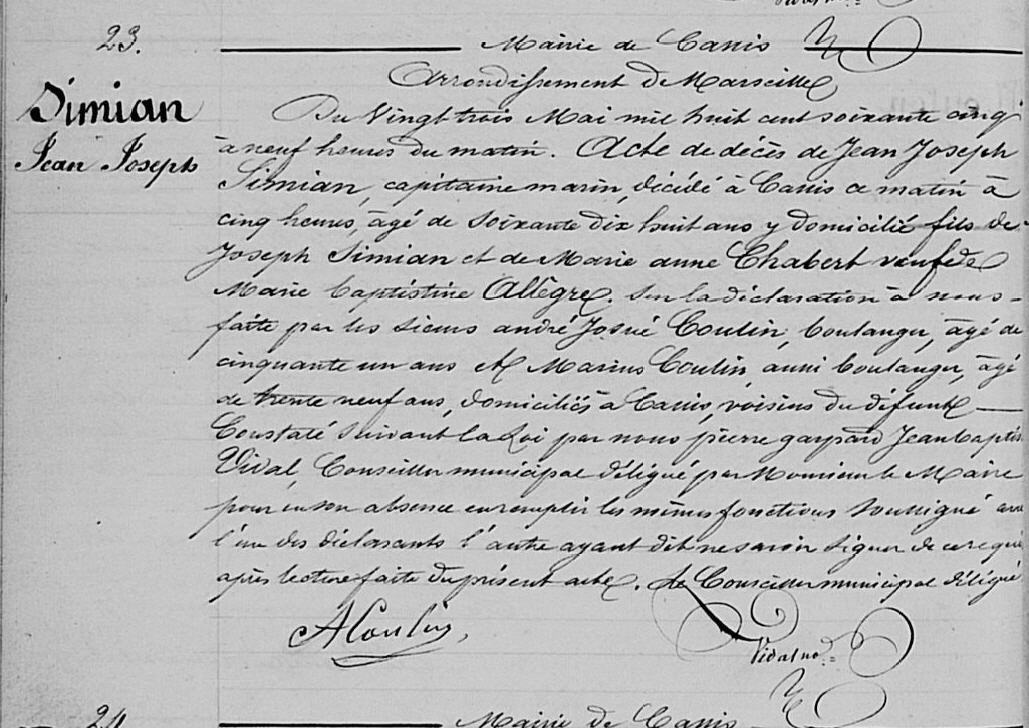 23.
Mairie de Cassis
Arrondissement de Marseille
Simian
Jean Joseph
Du Vingt trois Mai mil huit cent soixante cinq
à neuf heures du matin. Acte de décès de Jean Joseph
Simian, capitaine marin, décédé à Cassis ce matin à
cinq heures, âgé de soixante dix huit ans y domicilié fils de
Joseph Simian et de Marie anne Chabert veuf de
Marie Baptistine Allègre. Sur la déclaration à nous =
faite par les sieurs andré Josué Coulin, boulanger, âgé de
cinquante un ans et Marius Coulin, aussi boulanger, âgé
de trente neuf ans, domiciliés à Cassis, voisins du défunt
Constaté suivant la Loi par nous pierre gaspard Jean Baptis
Vidal, Conseiller municipal délégué par Monsieur le Maire
pour en son absence en remplir les mêmes fonctions soussigné avec
l'un des déclarants l'autre ayant dit ne savoir signer de ce requis
après lecture faite du présent acte. Le Conseiller municipal délégué
A Coulin,
Vidal
24
Mairie de Cassis